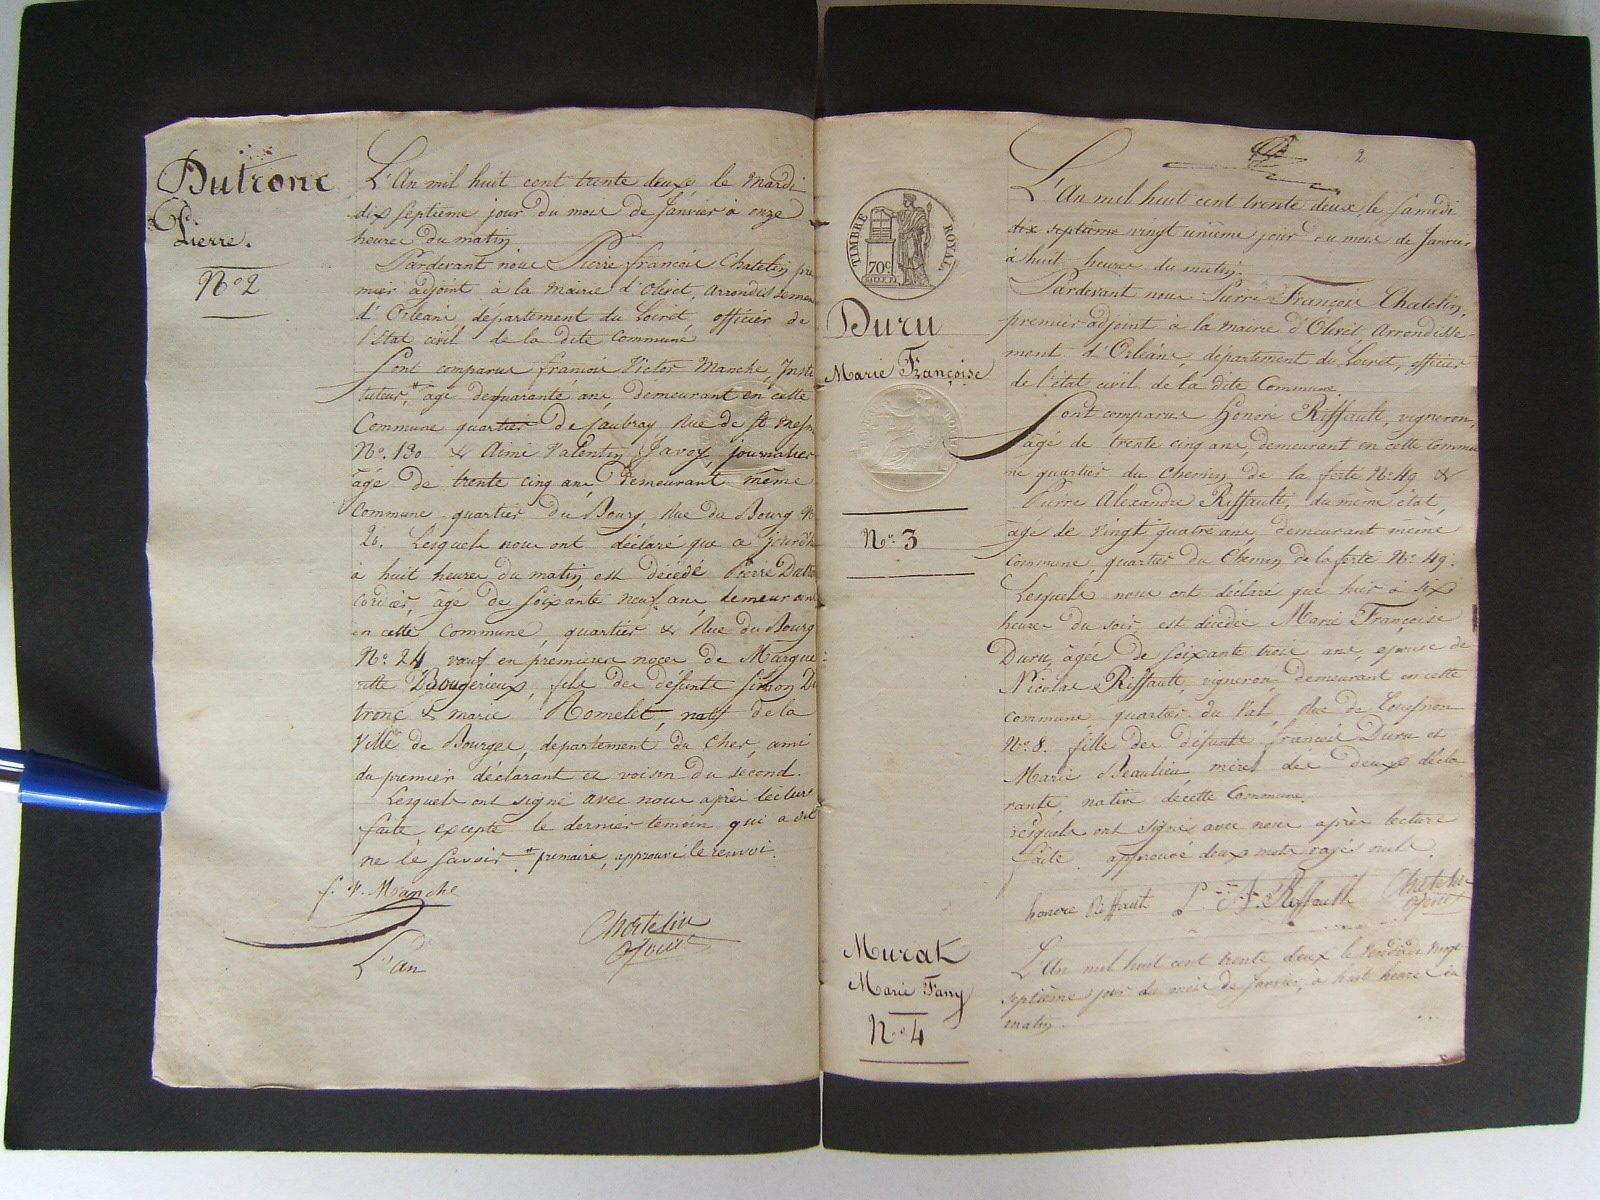 Dutronc
Pierre.
N° 2
L'An mil huit cent trente deux, le Mardi
dix septieme jour du mois de Janvier à onze
heures du matin
Pardevant nous Pierre françois Chatelin pre
mier adjoint à la Mairie d'Olivet, arrondissemen
d'Orleans département du Loiret, officier de
l'Etat civil de la dite Commune
Sont comparus françois Victor Manche, Insti
tuteur,# âgé dequarante ans, demeurant en cette
Commune quartier de Caubray Rue de St Mesm
N°. 130 & Aimé Valentin Javoy, journalier
âgé de trente cinq ans demeurant même
Commune quartier du Bourg, Rue du Bourg N°
26. Lesquels nous ont déclaré que ajourd'h
à huit heures du matin est décédé Pierre Dutro
cordier, âgé de soixante neuf ans, demeurant
en cette commune, quartier & Rue du Bourg
N°. 24 vœuf en premieres noces de Margue
ritte Bougerieux, fils des défunts Simon Du
tronc & marie Homelet, natif de la
Ville de Bourges, departement du Cher, ami
du premier déclarant et voisin du second.
Lesquels ont signé avec nous après lecture
faite excepté le dernier temoin qui a dit
ne le savoir # primaire, approuvé le renvoi.
f. v. Manche
Chatelin
adjoint
L'an
2
TIMBRE ROYAL
70c
Duru
Marie Françoise
N°. 3
L'An mil huit cent trente deux, le samedi
dix septième vingt unième jour du mois de Janvier
à huit heures du matin.
Pardevant nous Pierre François Chatelin,
premier adjoint à la mairie d'Olivet Arrondisse-
ment d'Orléans, département du Loiret, officier
de l'état civil de la dite Commune.
Sont comparus Honoré Riffault, vigneron,
âgé de trente cinq ans, demeurant en cette Commu
ne quartier du Chemin de la ferté N° 49 &
Pierre Alexandre Riffault, du même état,
âgé de vingt quatre ans, demeurant même
commune, quartier du Chemin de la ferté N°. 49.
Lesquels nous ont déclaré que hier à six
heures du soir, est décédée Marie Françoise
Duru, âgée de soixante trois ans, epouse de
Nicolas Riffault, vigneron, demeurant en cette
commune quartier du Val, Rue de Couesnon
N°. 8. fille des défunts françois Duru et
Marie Beaulieu, mère des deux décla
rants, native decette Commune.
Lesquels ont signé avec nous après lecture
faite. approuvé deux mots rayés nuls.
honore Riffault P A. Riffault Chatelin
adjoint
Murat
Marie Fany
N° 4
L'An mil huit cent trente deux le Vendredi vingt
septième jour du mois de Janvier, à huit heures du
matin.